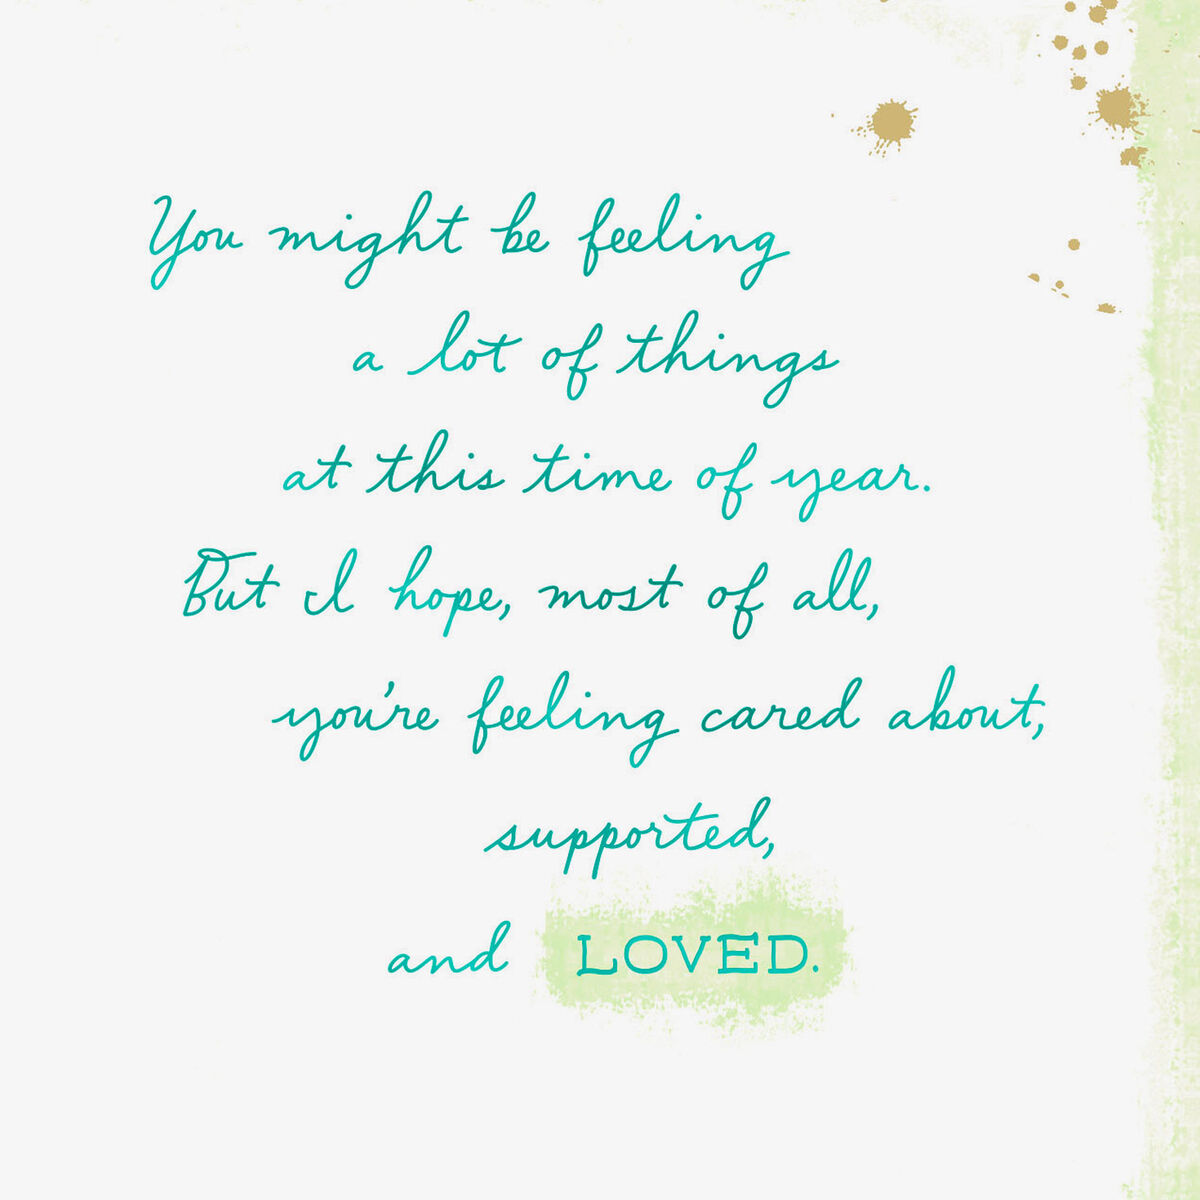 You might be feeling
a lot of things
at this time of year.
But I hope, most of all,
you're feeling cared about,
supported,
and LOVED.